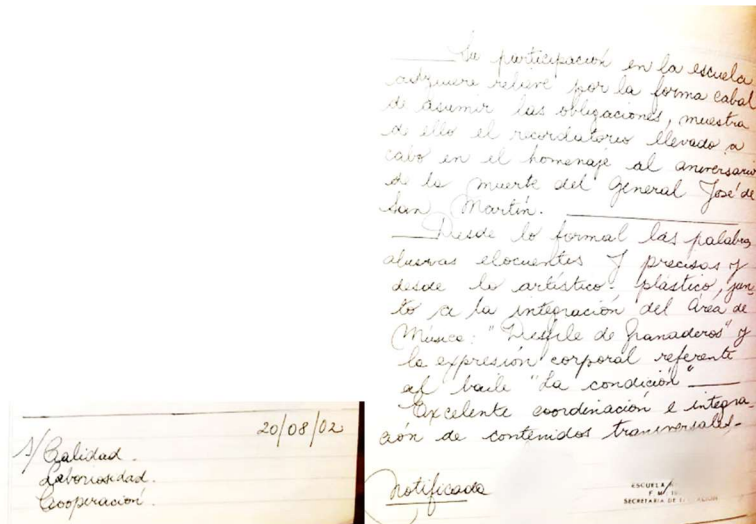 20/08/02
s/ Calidad.
Laboriosidad.
Cooperación.
Su participación en la escuela
adquiere relieve por la forma cabal
de asumir las obligaciones, muestra
de ello el recordatorio llevado a
cabo en el homenaje al aniversario
de la muerte del General José de
San Martín.
Desde lo formal las palabras
alusivas elocuentes y precisas y
desde lo artístico, plástico, jun-
to a la integración del Área de
Música: "Desfile de Granaderos" y
la expresión corporal referente
al baile "La condición"
Excelente coordinación e integra-
ción de contenidos transversales.
Notificada
ESCUELA
SECRETARIA DE